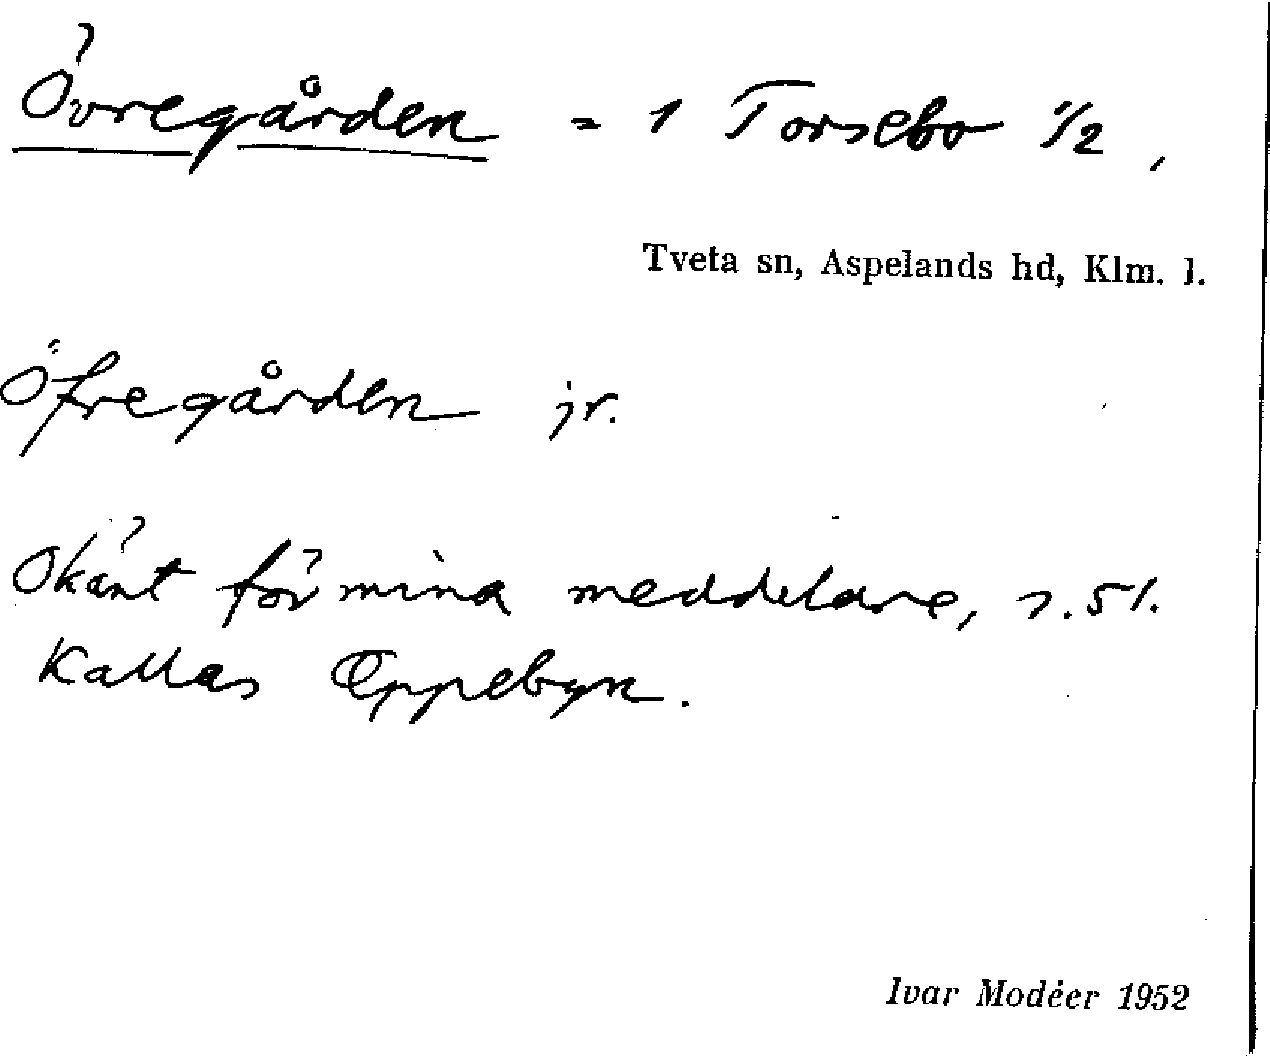 Övregården = 1 Torsebo 1/2,
Tveta sn, Aspelands hd, Klm. l.
Öfregården jr.
Okänt för mina meddelare, s. st.
Kallas Öppebyn.
Ivar Modéer 1952